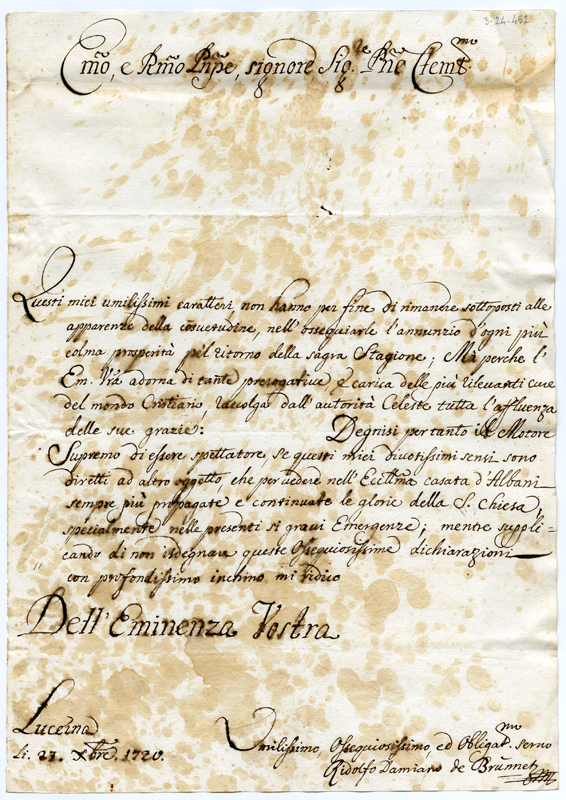 3-24-452
Emo, e Rmo Pnpe, signore Sig.re Pne Clemt.mo
Questi miei umilissimi caratteri non hanno per fine di rimanere sottoposti alle
apparenze della cosuetudine, nell'ossequiarle l'annunzio d'ogni più
colma prosperità pel ritorno della sagra Stagione; Mà perche l'
Em. Vra adorna di tante prerogative è carica delle più rilevanti cure
del mondo Cristiano, racolga dall'autorità Celeste tutta l'affluenza
delle sue grazie: Degnisi per tanto il Motore
Supremo di essere spettatore, se questi miei divotissimi sensi sono
diretti ad altro oggetto, che per vedere nell'Eccellma casata d'Albani
sempre più propagate e continuate le glorie della S. Chiesa,
specialmente nelle presenti si gravi Emergenze; mentre suppli=
cando di non isdegnare queste Ossequiosissime dichiarazioni
con profondissimo inchino mi ridico
Dell'Eminenza Vostra
Lucerna
li. 27. Xbre. 1720.
Umilissimo, Ossequiosissimo, ed Obligat.mo servo
Ridolfo Damiano de Brunnet